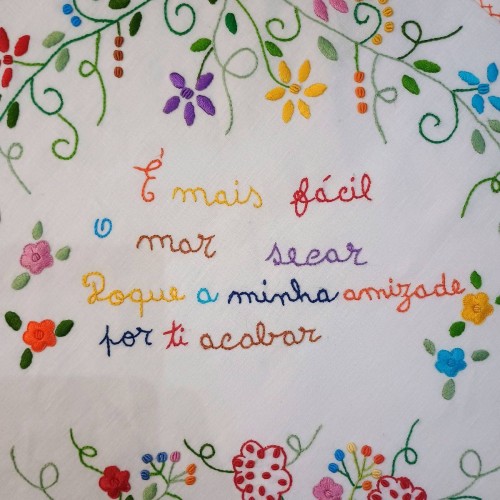 É mais fácil
o mar secar
Doque a minha amizade
por ti acabar